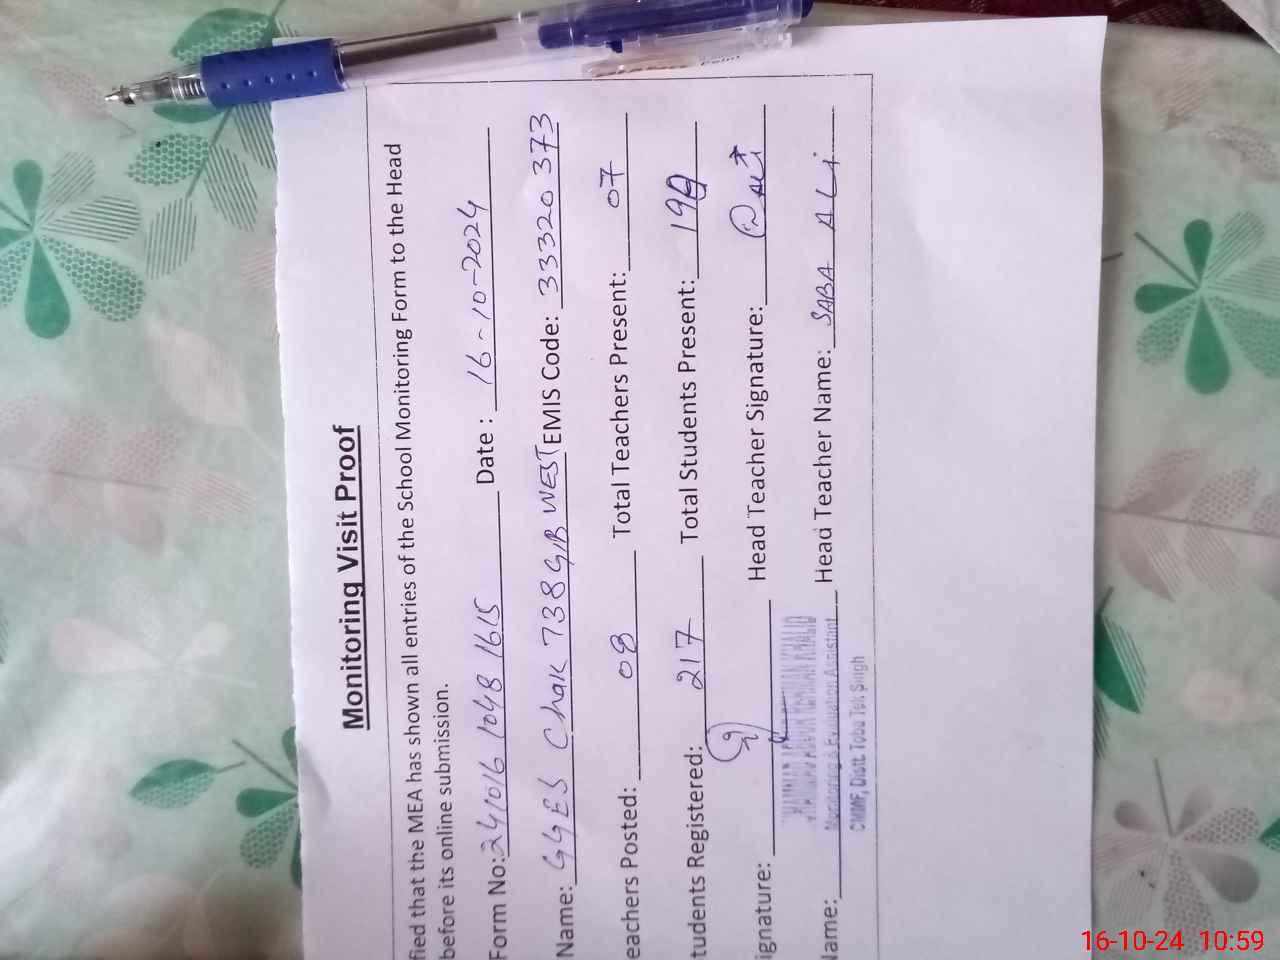 Monitoring Visit Proof
fied that the MEA has shown all entries of the School Monitoring Form to the Head
before its online submission.
Form No: 241016 1048 1615 Date : 16-10-2024
Name: GGES Chak 738 G/B WEST EMIS Code: 33320373
eachers Posted: 08 Total Teachers Present: 07
tudents Registered: 217 Total Students Present:
ignature: Head Teacher Signature:
Name: Head Teacher Name: SABA ALi
Monitoring & Evaluation Assistant
CMMF, Distt. Toba Tek Singh
16-10-24 10:59